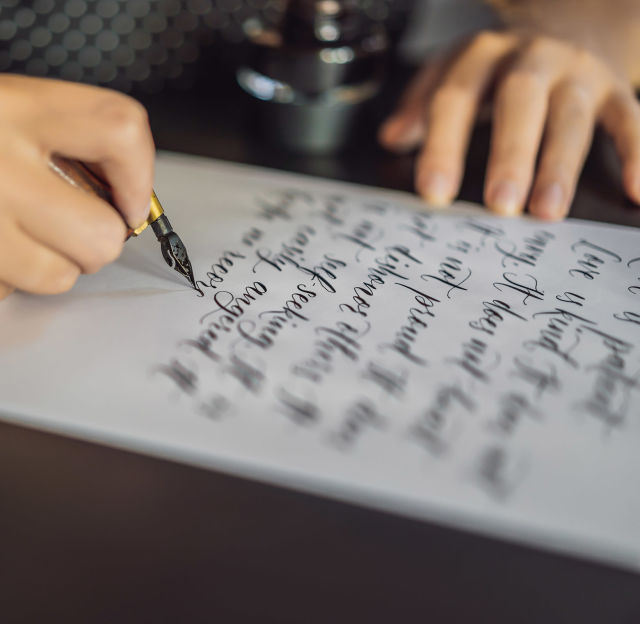 patient
Love is kind It does not
envy It does not boast
It is not proud It does
not dishonor others It
is not self-seeking It is
not easily angered It
keeps no recor